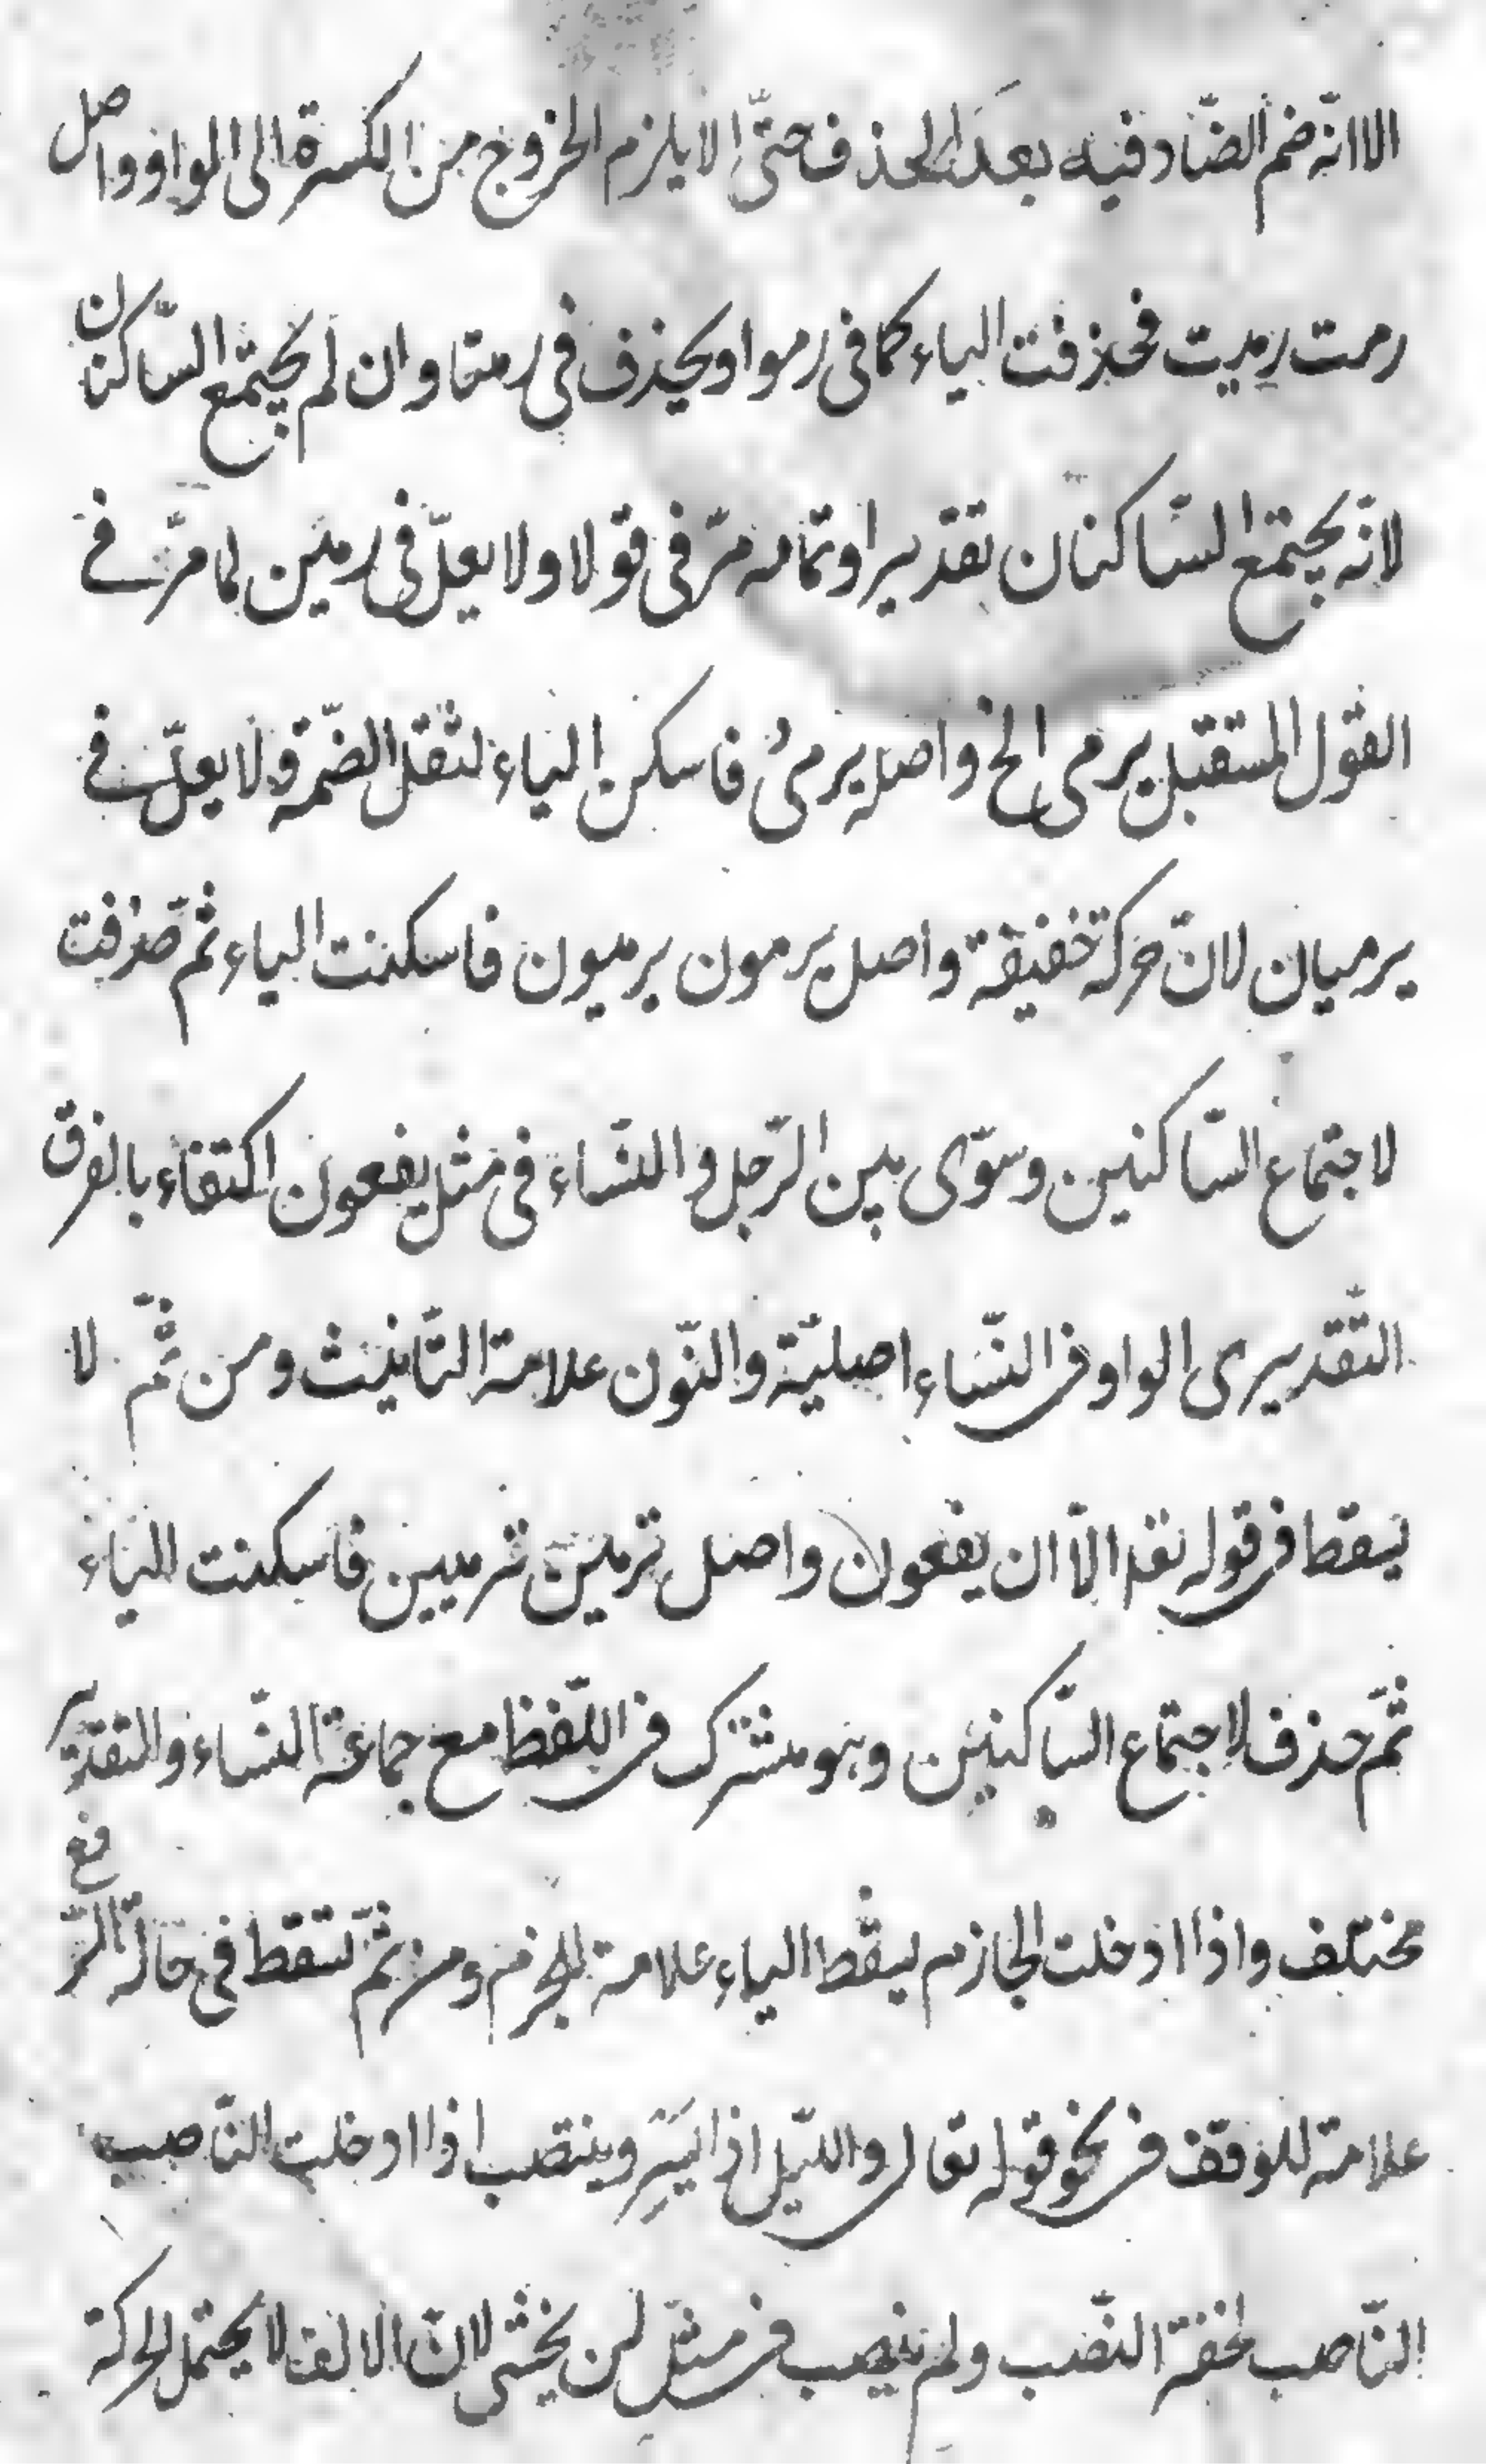 الا انّه ضم الضّاد فيه بعد الحذف حتّى لا يلزم الخروج من الكسرة الى الواو واصل
رمت رميت فحذفت الياء كما فى رموا ويحذف فى رمتا وان لم يجتمع السّاكنان
لانّه يجتمع السّاكنان تقديرا وتمامه مرّ فى قولا ولا يعلّ فى رمين لما مرّ فى
القول المستقبل يرمى الخ واصله يرمىُ فاسكن الياء لثقل الضّمّة ولا يعلّ فى
يرميان لانّ حركة خفيفة واصل يرمون يرميون فاسكنت الياء ثمّ حذفت
لاجتماع السّاكنين وسوّى بين الرّجل والنّساء فى مثل يفعون اكتفاء بالفرق
التّقديرى الواو فى النّساء اصليّة والنّون علامة التّأنيث ومن ثمّ لا
يسقط فى قوله تعا الّا ان يفعون واصل ترمين ترميين فاسكنت الياء
ثمّ حذف لاجتماع السّاكنين وهو مشترك فى اللّفظ مع جماعة النّساء والتقدير
مختلف واذا ادخلت الجازم يسقط الياء علامة للجزم ومن ثمّ تسقط فى حالة الرّفع
علامة للوقف فى نحو قوله تعالى واللّيل اذا يَسْرِ وينتصب اذا ادخلت النّاصب
النّاصب لخفة النّصب ولم ينصب فى مثل لن يخشى لانّ الالف لا يحتمل الحركة